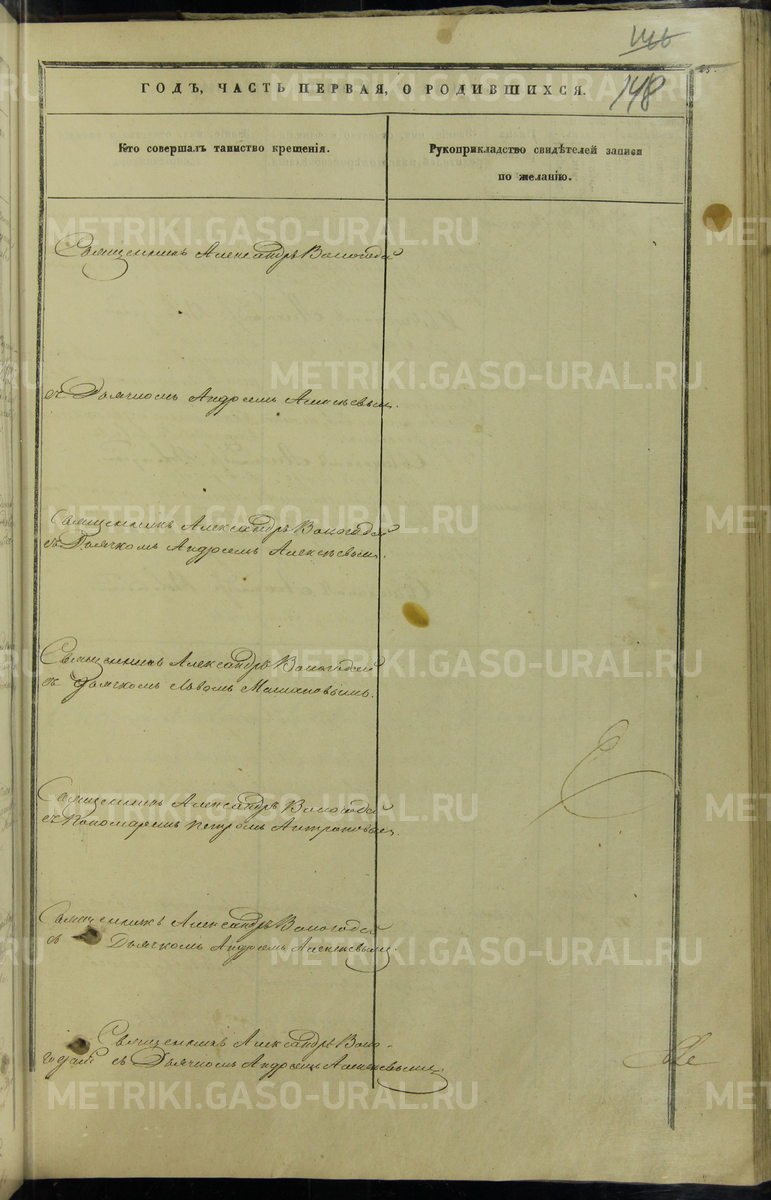 148
ГОДЪ, ЧАСТЬ ПЕРВАЯ, О РОДИВШИХСЯ.
Кто совершалъ таинство крещенія.
Рукоприкладство свидѣтелей записи
по желанію.
Священникъ Александръ Вологодской
съ Дьячкомъ Андреемъ Алексѣевымъ.
Священникъ Александръ Вологодской
съ Дьячкомъ Андреемъ Алексѣевымъ.
Священникъ Александръ Вологодской
съ дьячкомъ
Священникъ Александръ Вологодской
съ Пономаремъ Петромъ Антроповымъ.
Священникъ Александръ Вологодской
съ Дьячкомъ Андреемъ Алексѣевымъ.
Священникъ Александръ Воло-
годской съ Дьячкомъ Андреемъ Алексѣевымъ.
METRIKI.GASO-URAL.RU